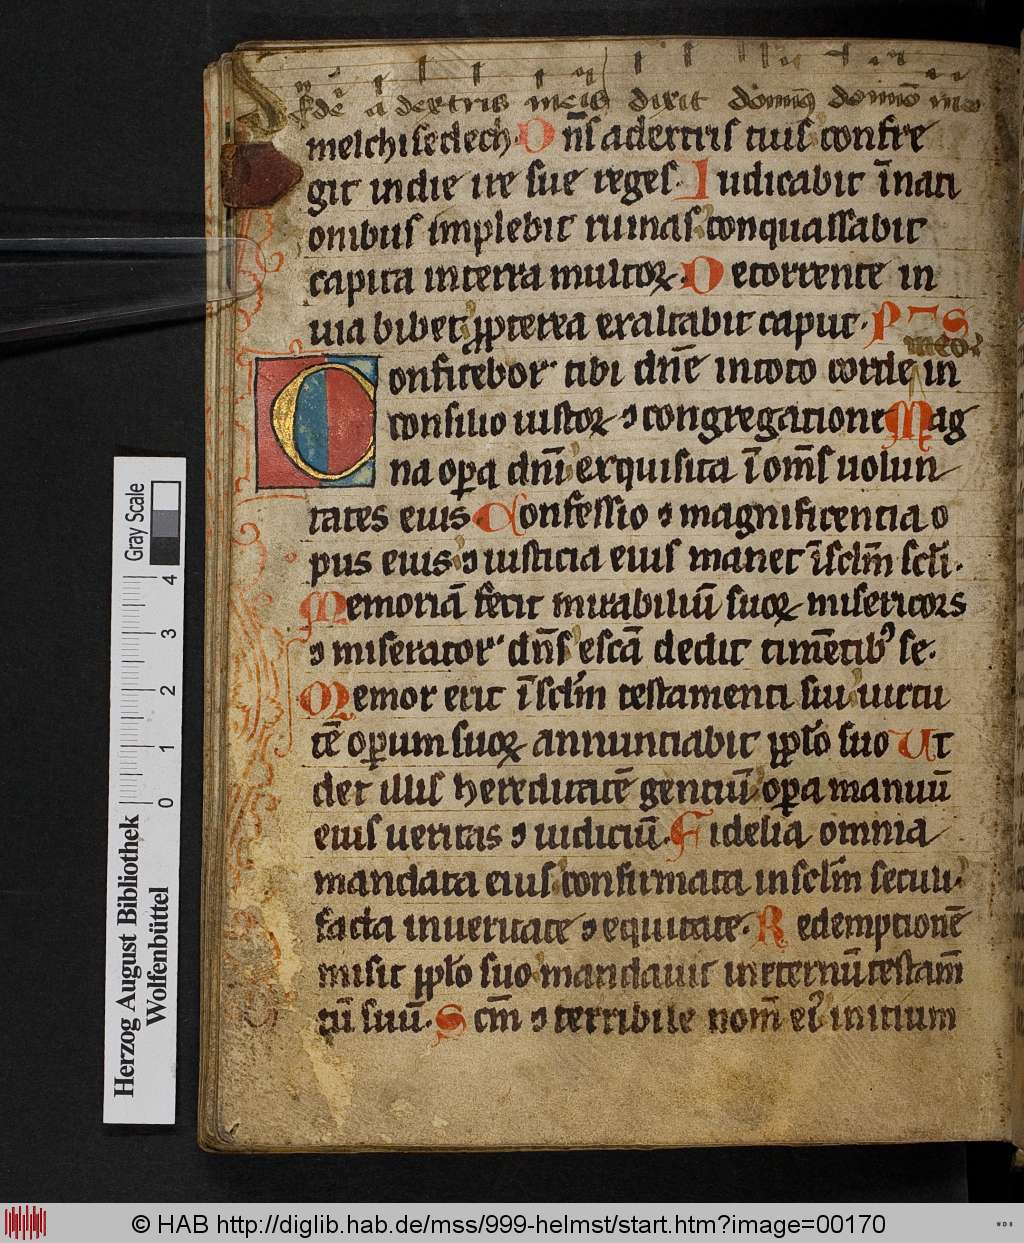 Sede a dextris meis dixit dominꝰ domino meo
melchisedech· Dn̄s adextris tuis confre
git indie ire sue reges· Iudicabit ī nati
onibus implebit ruinas conquassabit
capita interra multoꝝ· Detorrente in
uia bibet ꝓpterea exaltabit caput· PS
meo
Confitebor tibi dn̄e intoto corde in
consilio iustoꝝ ⁊ congregatione Mag
na oꝑa dn̄i exquisita ī om̄s uolun
tates eius Confessio ⁊ magnificentia o
pus eius ⁊ iusticia eius manet ī sclm̄ scl̄i·
Memoriā fecit mirabiliū suoꝝ misericors
⁊ miserator dn̄s escā dedit timētibꝰ se·
Memor erit ī sclm̄ testamenti sui uirtu
tē oꝑum suoꝝ annunciabit pplo̅ suo Ut
det illis hereditatē gentiū oꝑa manuū
eius ueritas ⁊ iudiciū· Fidelia omnia
mandata eius confirmata insclm̄ seculi·
facta inueritate ⁊ equitate· Redemptionē
misit pplo̅ suo mandauit ineternū testam̄
tū suū· Scm̄ ⁊ terribile nom̄ eiꝰ initium
Herzog August Bibliothek
Wolfenbüttel
0 1 2 3 4
Gray Scale
© HAB http://diglib.hab.de/mss/999-helmst/start.htm?image=00170